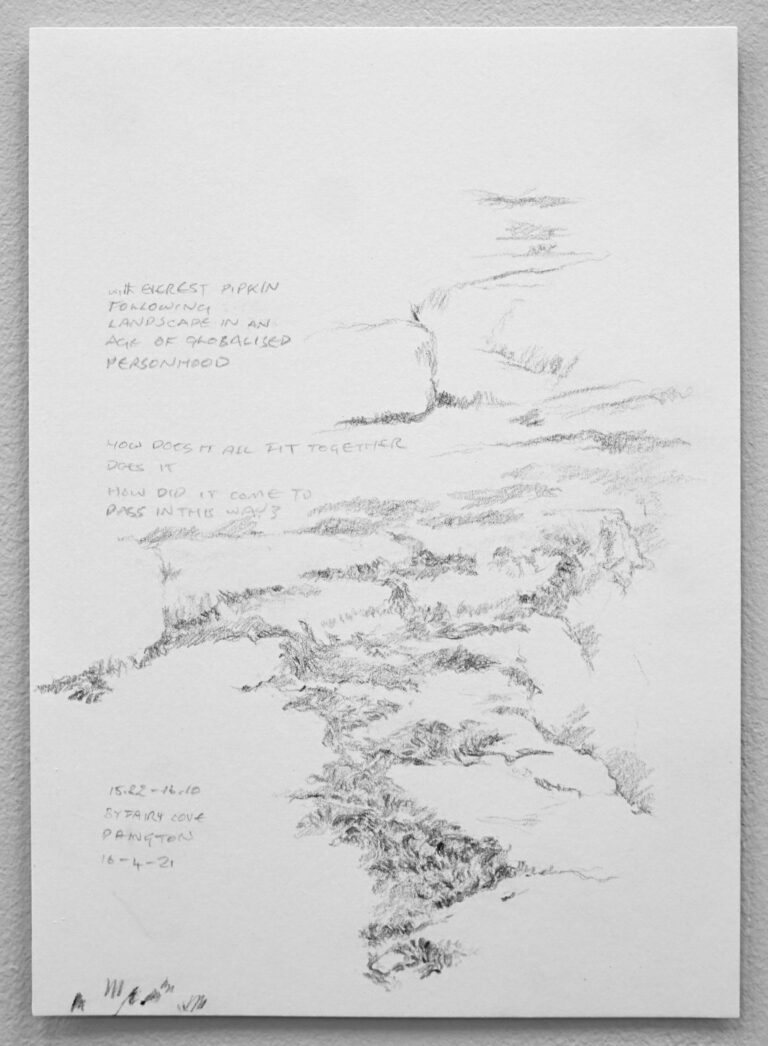 with EVEREST PIPKIN
FOLLOWING
LANDSCAPE IN AN
AGE OF GLOBALISED
PERSONHOOD
HOW DOES IT ALL FIT TOGETHER
DOES IT
HOW DID IT COME TO
PASS IN THIS WAY?
15.22-16.10
BY FAIRY COVE
PAINGTON
16-4-21